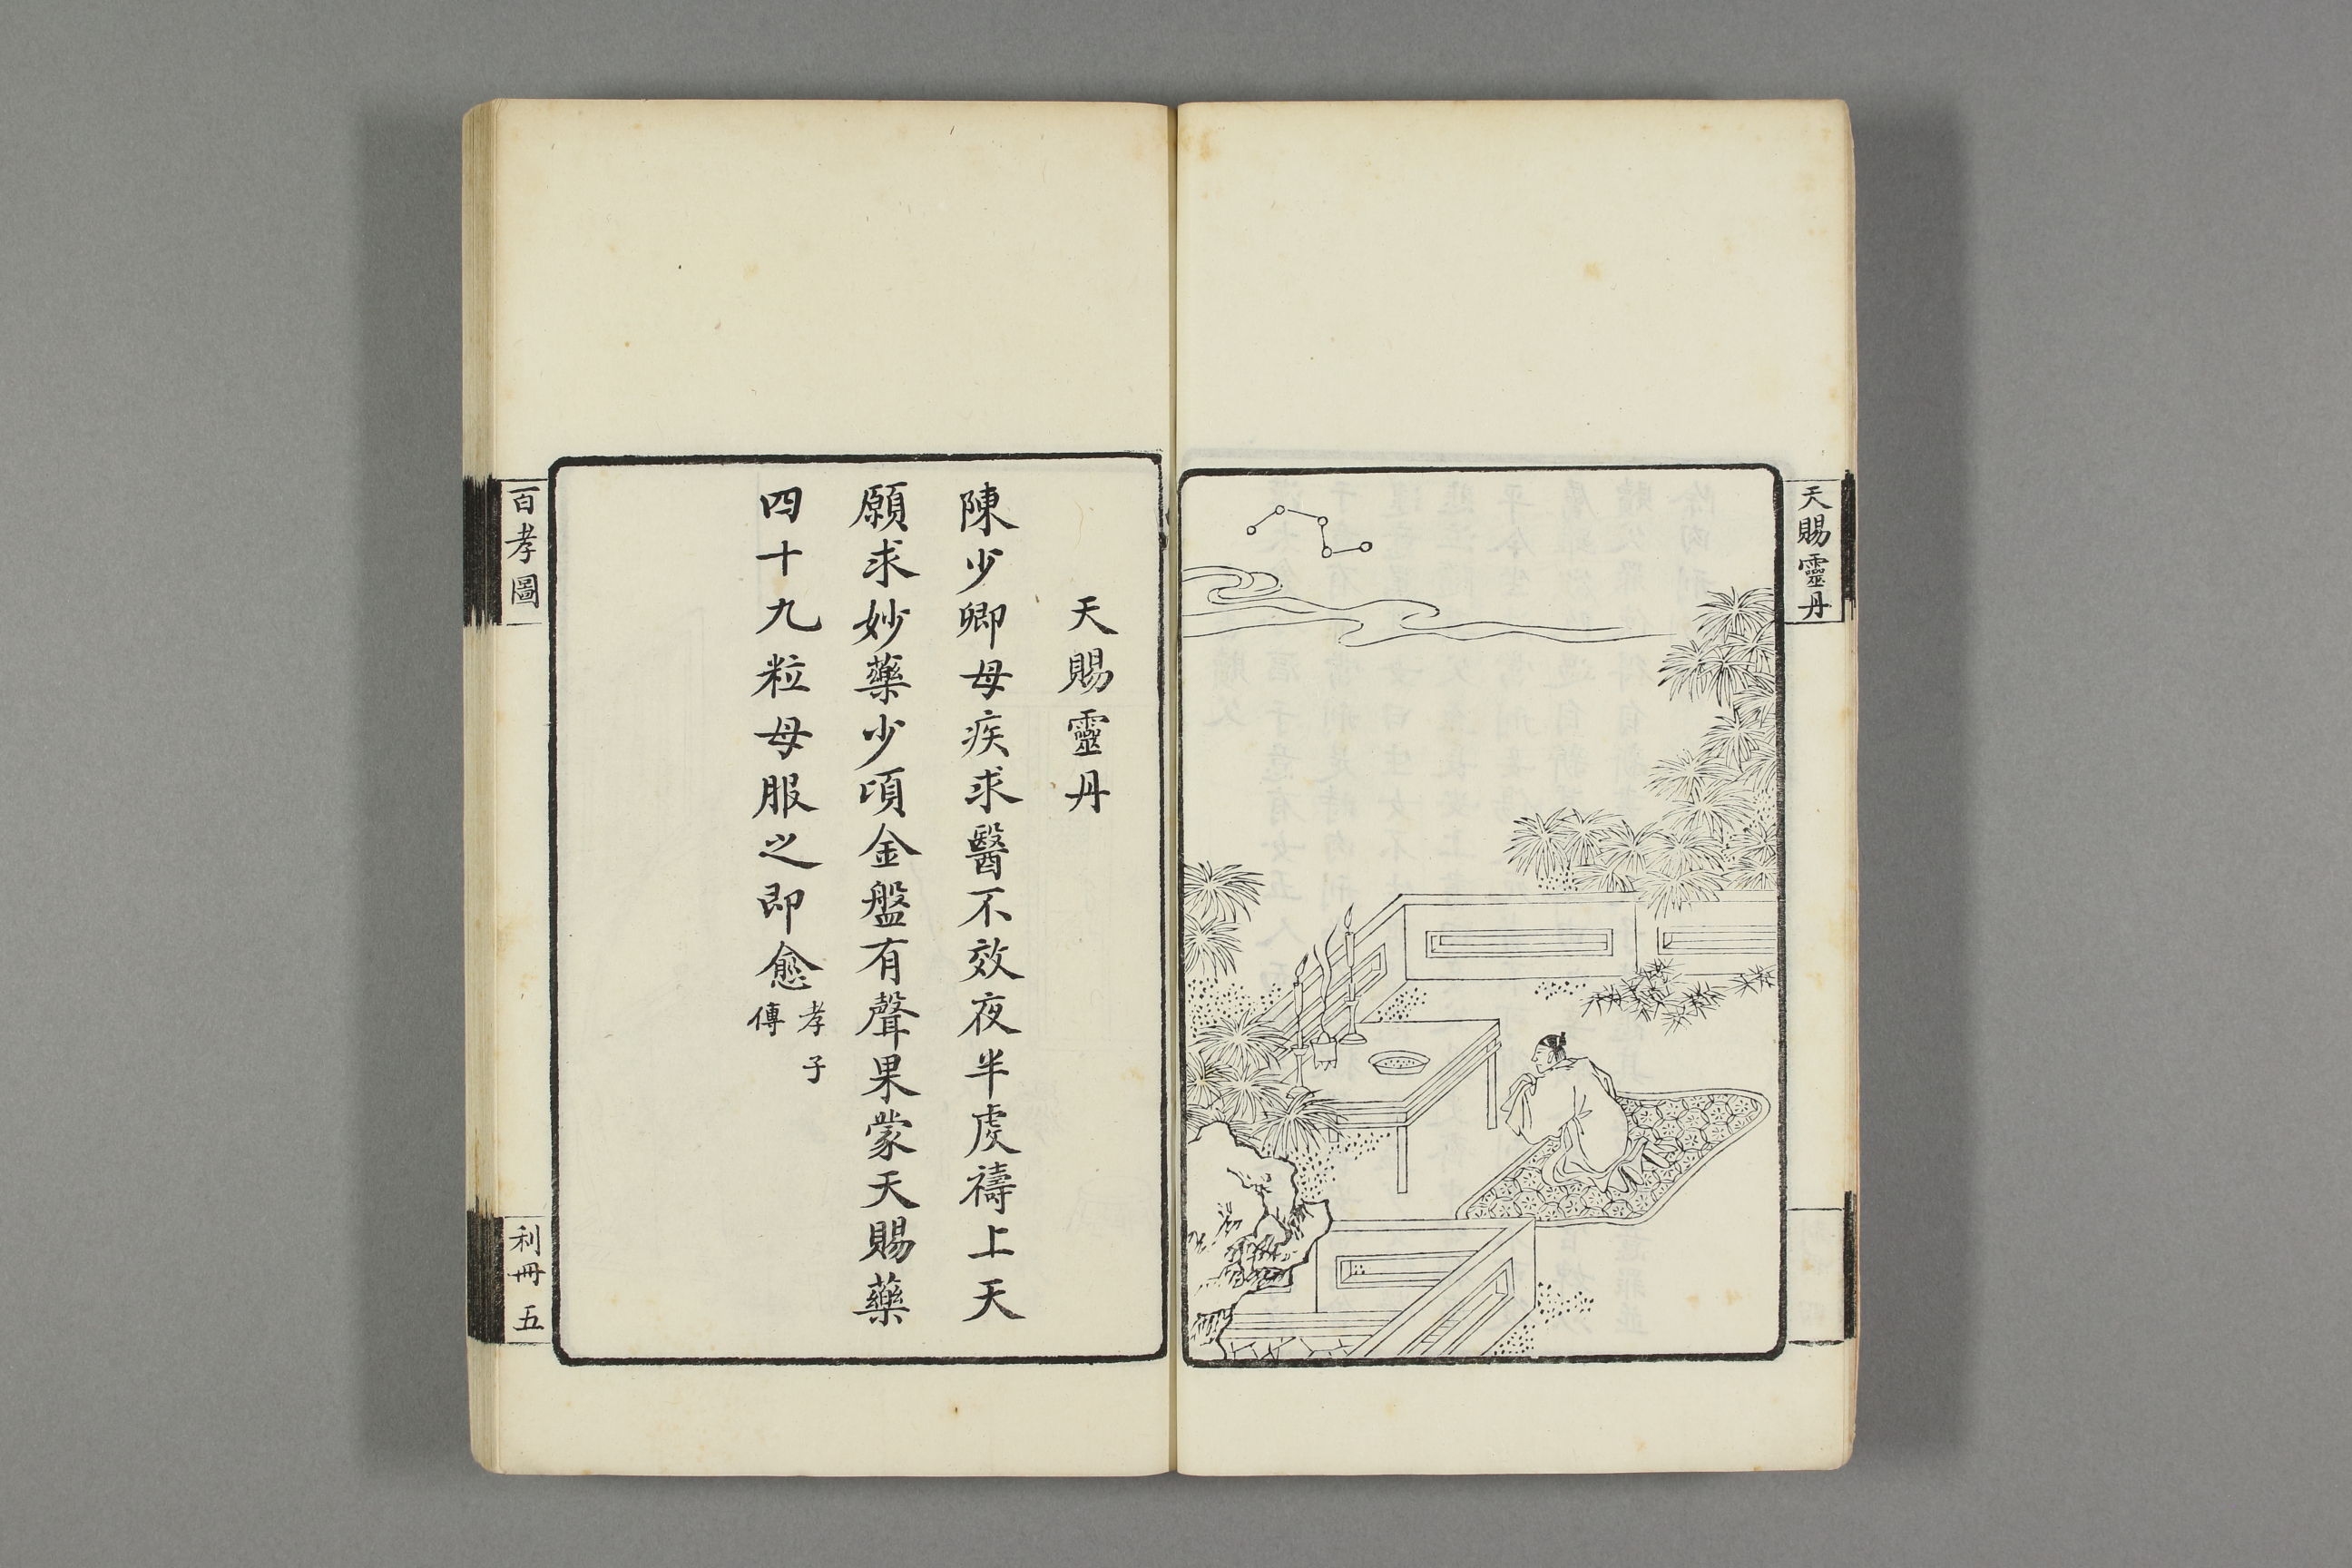 天賜靈丹
天賜靈丹
陳少卿母疾求醫不效夜半虔禱上天
願求妙藥少頃金盤有聲果蒙天賜藥
四十九粒母服之即愈孝子傳
百孝圖
利冊 五